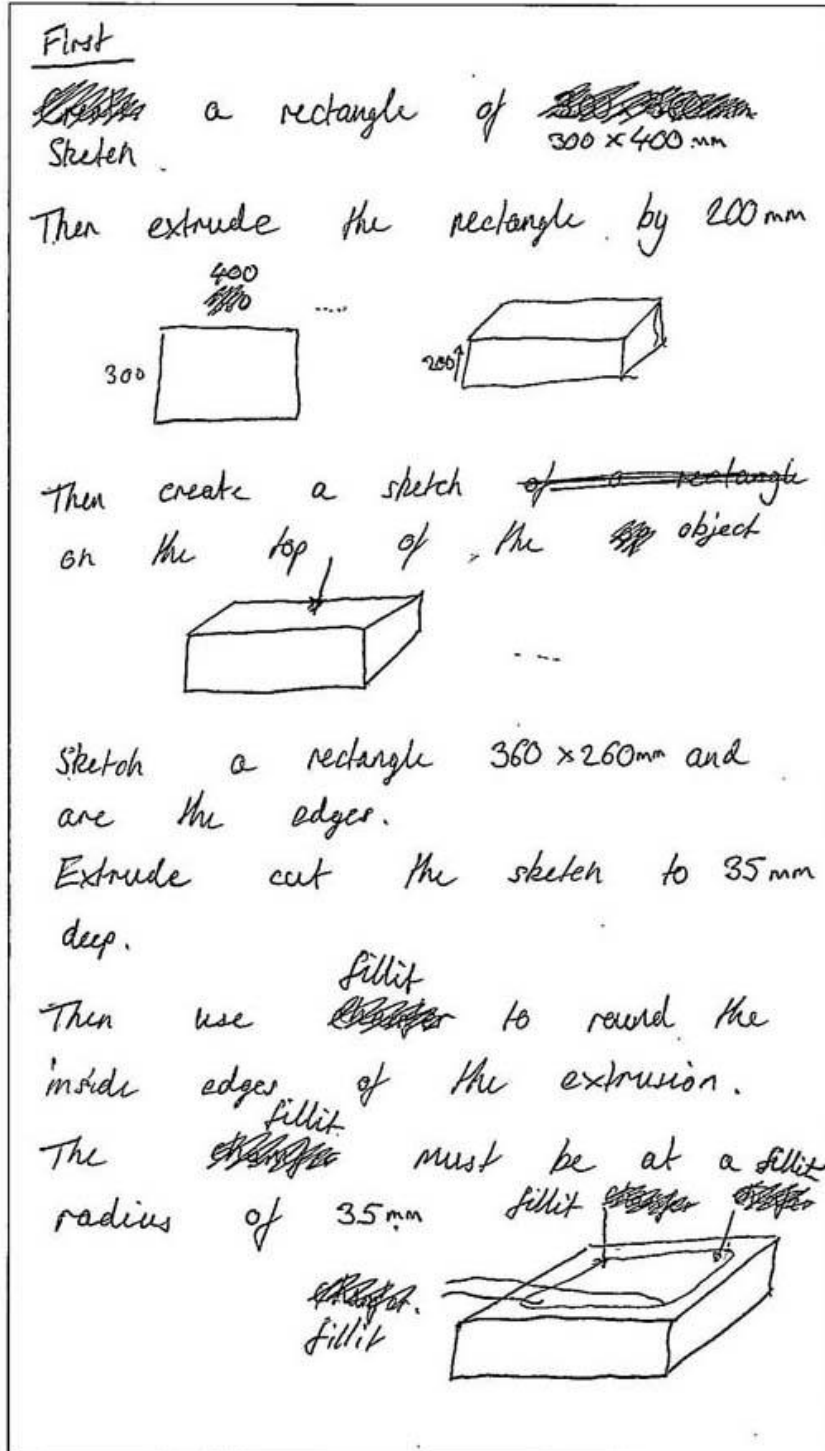 First
a rectangle of
Sketch 300 x 400 mm
Then extrude the rectangle by 200 mm
400
300
200
Then create a sketch of a rectangle
on the top of the object
Sketch a rectangle 360 x 260mm and
are the edges.
Extrude cut the sketch to 35 mm
deep.
fillit
Then use to round the
inside edges of the extrusion.
fillit
The must be at a fillit
radius of 35 mm fillit
fillit